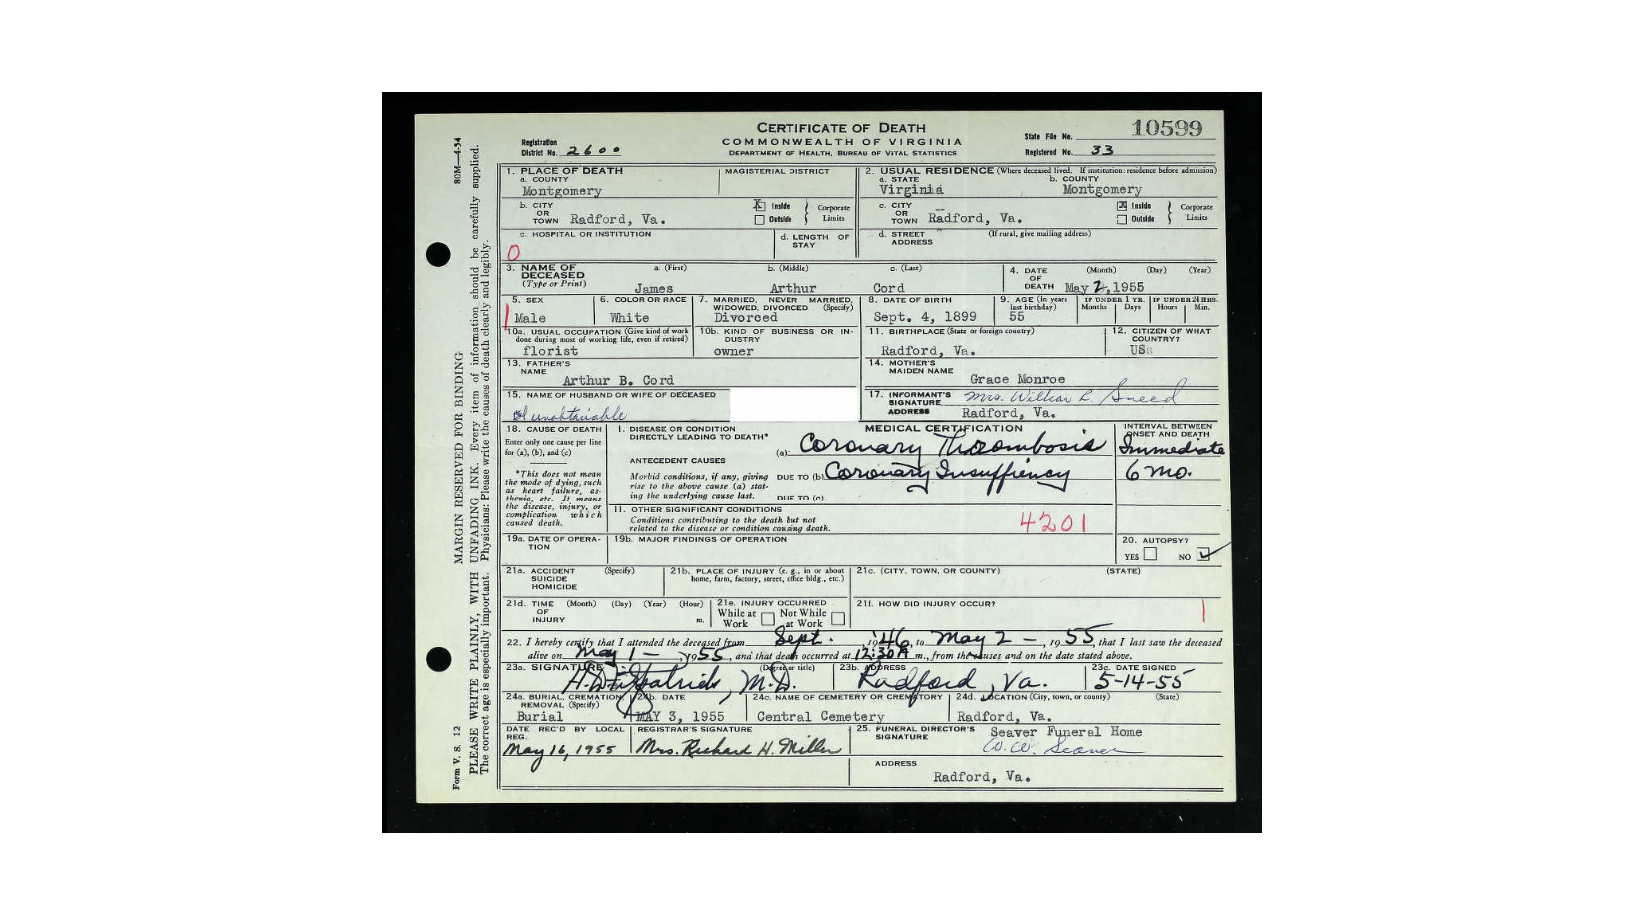 CERTIFICATE OF DEATH
COMMONWEALTH OF VIRGINIA
DEPARTMENT OF HEALTH, BUREAU OF VITAL STATISTICS
Registration District No. 2600
State File No. 10599
Registered No. 33
80M—4-54
MARGIN RESERVED FOR BINDING
PLEASE WRITE PLAINLY, WITH UNFADING INK. Every item of information should be carefully supplied.
The correct age is especially important. Physicians: Please write the causes of death clearly and legibly.
Form V. S. 12
1. PLACE OF DEATH
a. COUNTY
Montgomery
MAGISTERIAL DISTRICT
2. USUAL RESIDENCE (Where deceased lived. If institution: residence before admission)
a. STATE
Virginia
b. COUNTY
Montgomery
b. CITY OR TOWN Radford, Va.
X Inside Outside Corporate Limits
c. CITY OR TOWN Radford, Va.
X Inside Outside Corporate Limits
c. HOSPITAL OR INSTITUTION
0
d. LENGTH OF STAY
d. STREET ADDRESS (If rural, give mailing address)
3. NAME OF DECEASED (Type or Print)
a. (First) b. (Middle) c. (Last)
James Arthur Cord
4. DATE OF DEATH (Month) (Day) (Year)
May 2, 1955
5. SEX
Male
6. COLOR OR RACE
White
7. MARRIED, NEVER MARRIED, WIDOWED, DIVORCED (Specify)
Divorced
8. DATE OF BIRTH
Sept. 4, 1899
9. AGE (In years last birthday)
55
IF UNDER 1 YR. Months Days
IF UNDER 24 HRS. Hours Min.
10a. USUAL OCCUPATION (Give kind of work done during most of working life, even if retired)
florist
10b. KIND OF BUSINESS OR INDUSTRY
owner
11. BIRTHPLACE (State or foreign country)
Radford, Va.
12. CITIZEN OF WHAT COUNTRY?
US
13. FATHER'S NAME
Arthur B. Cord
14. MOTHER'S MAIDEN NAME
Grace Monroe
15. NAME OF HUSBAND OR WIFE OF DECEASED
unobtainable
17. INFORMANT'S SIGNATURE Mrs. William L. Sneed
ADDRESS Radford, Va.
18. CAUSE OF DEATH
Enter only one cause per line for (a), (b), and (c)
*This does not mean the mode of dying, such as heart failure, asthenia, etc. It means the disease, injury, or complication which caused death.
MEDICAL CERTIFICATION
INTERVAL BETWEEN ONSET AND DEATH
I. DISEASE OR CONDITION DIRECTLY LEADING TO DEATH*
(a) Coronary Thrombosis Immediate
ANTECEDENT CAUSES
Morbid conditions, if any, giving rise to the above cause (a) stating the underlying cause last.
DUE TO (b) Coronary Insuffiency 6 mo.
DUE TO (c)
II. OTHER SIGNIFICANT CONDITIONS
Conditions contributing to the death but not related to the disease or condition causing death.
4201
19a. DATE OF OPERATION
19b. MAJOR FINDINGS OF OPERATION
20. AUTOPSY?
YES NO
21a. ACCIDENT SUICIDE HOMICIDE (Specify)
21b. PLACE OF INJURY (e. g., in or about home, farm, factory, street, office bldg., etc.)
21c. (CITY, TOWN, OR COUNTY) (STATE)
21d. TIME OF INJURY (Month) (Day) (Year) (Hour) m.
21e. INJURY OCCURRED
While at Work Not While at Work
21f. HOW DID INJURY OCCUR?
22. I hereby certify that I attended the deceased from Sept. , 1946, to May 2 – , 1955, that I last saw the deceased
alive on May 1 – , 1955, and that death occurred at 12:30 A m., from the causes and on the date stated above.
23a. SIGNATURE (Degree or title)
H. D. Fitzpatrick, M.D.
23b. ADDRESS
Radford, Va.
23c. DATE SIGNED
5-14-55
24a. BURIAL, CREMATION, REMOVAL (Specify)
Burial
24b. DATE
MAY 3, 1955
24c. NAME OF CEMETERY OR CREMATORY
Central Cemetery
24d. LOCATION (City, town, or county) (State)
Radford, Va.
DATE REC'D BY LOCAL REG.
May 16, 1955
REGISTRAR'S SIGNATURE
Mrs. Richard H. Miller
25. FUNERAL DIRECTOR'S SIGNATURE
Seaver Funeral Home
W. W. Seaver
ADDRESS
Radford, Va.